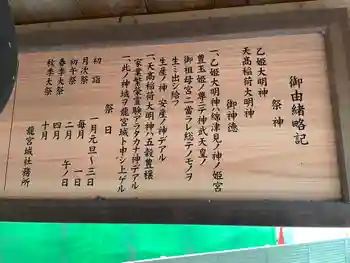 御由緒略記
祭神
乙姫大明神
天高稲荷大明神
御神徳
一、乙姫大明神ハ綿津見ノ神ノ姫宮
豊玉姫ノ尊デ神武天皇ノ
御祖母宮ニ當ラレ総テノモノヲ
生ミ出シ給フ
生産ノ神 安産ノ神デアル
一、天高稲荷大明神ハ五穀豊穣
家業繁栄霊験アラタカナ神デアル
一、此ノ神域ヲ龍宮城ト申シ上ゲル
祭日
初詣 一月元旦〜三日
月次祭 毎月一日
初午祭 二月午ノ日
春季大祭 四月
秋季大祭 十月
龍宮城社務所